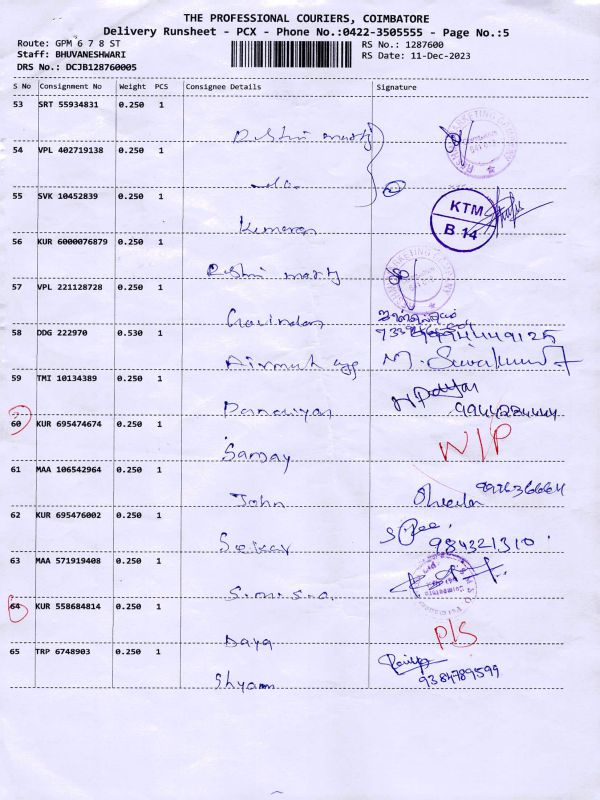 THE PROFESSIONAL COURIERS, COIMBATORE
Delivery Runsheet - PCX - Phone No.:0422-3505555 - Page No.:5
Route: GPM 6 7 8 ST RS No.: 1287600
Staff: BHUVANESHWARI RS Date: 11-Dec-2023
DRS No.: DCJB128760005
S No Consignment No Weight PCS Consignee Details Signature
53 SRT 55934831 0.250 1
54 VPL 402719138 0.250 1
55 SVK 10452839 0.250 1
KTM
B 14
Kumaran
56 KUR 6000076879 0.250 1
57 VPL 221128728 0.250 1
Govindan
58 DDG 222970 0.530 1
9994449125
59 TMI 10134389 0.250 1
9944284444
60 KUR 695474674 0.250 1
N/P
Samay
61 MAA 106542964 0.250 1
John
62 KUR 695476002 0.250 1
984321310
Sekar
63 MAA 571919408 0.250 1
S.m.s.a.
64 KUR 558684814 0.250 1
P/S
Daya
65 TRP 6748903 0.250 1
9384789599
Shyam